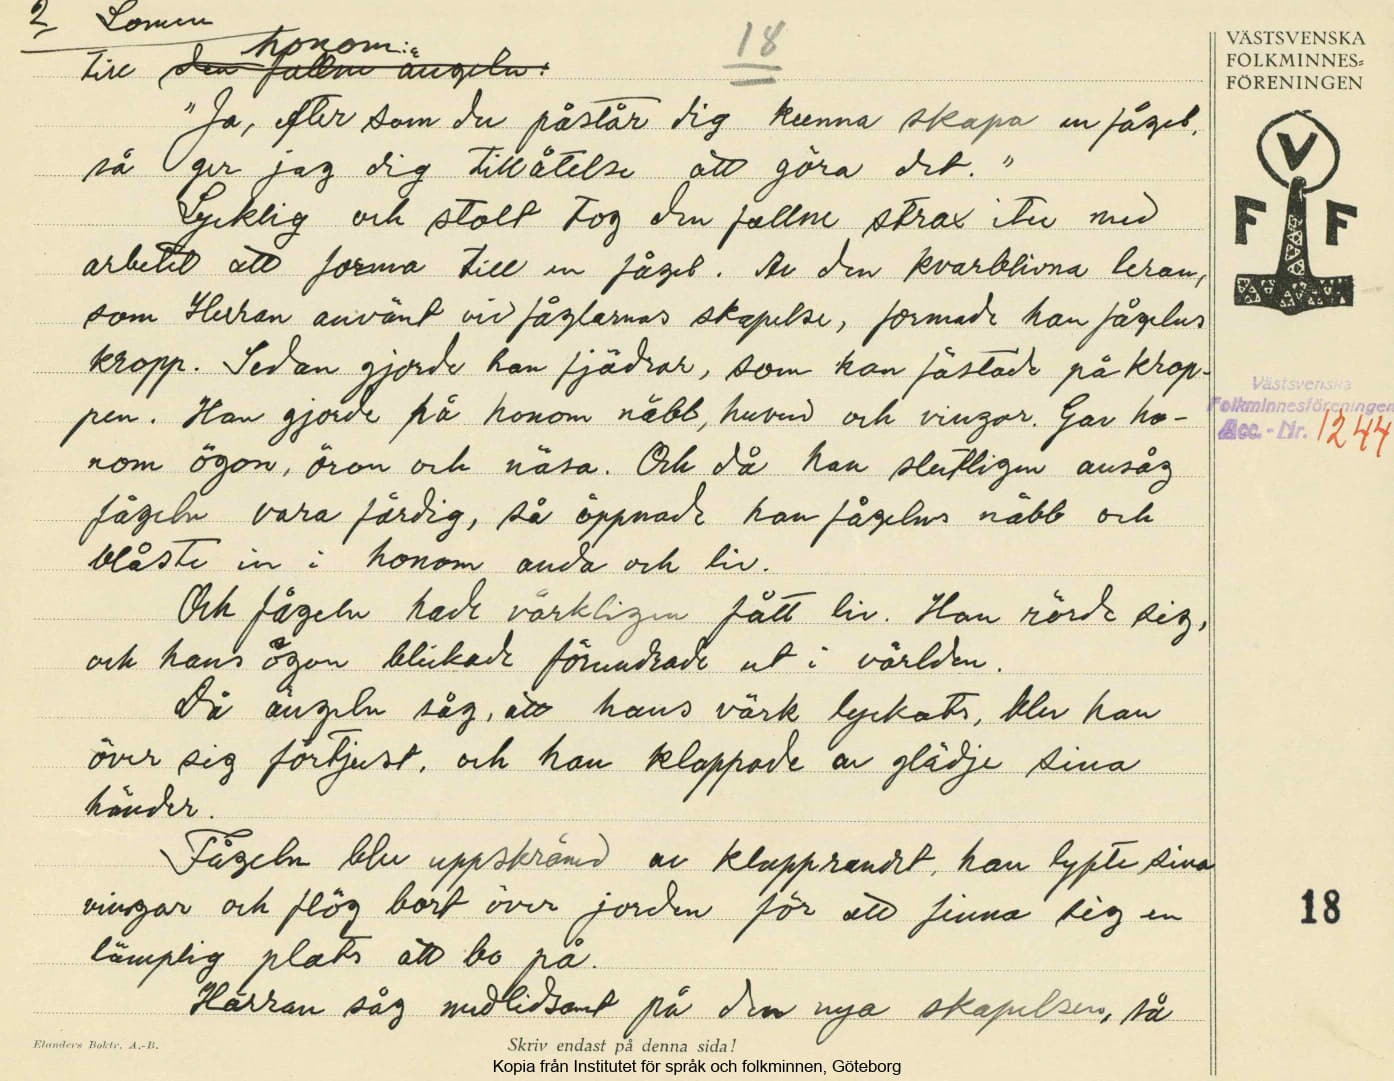 2 Lomen
18
honom:
till den fallne ängeln:
"Ja, efter som du påstår dig kunna skapa en fågel,
så ger jag dig tillåtelse att göra det."
Lycklig och stolt tog den fallne strax itu med
arbetet att forma till en fågel. Av den kvarblivna leran,
som Herran använt vid fåglarnas skapelse, formade han fågelns
kropp. Sedan gjorde han fjädrar, som han fästade på krop-
pen. Han gjorde på honom näbb, huvud och vingar. Gav ho-
nom ögon, öron och näsa. Och då han slutligen ansåg
fågeln vara färdig, så öppnade han fågelns näbb och
blåste in i honom anda och liv.
Och fågeln hade värkligen fått liv. Han rörde sig,
och hans ögon blickade förundrade ut i världen.
Då ängeln såg, att hans värk lyckats, blev han
över sig förtjust, och han klappade av glädje sina
händer.
Fågeln blev uppskrämd av klapprandet, han lypte sina
vingar och flög bort över jorden för att finna sig en
lämplig plats att bo på.
Härran såg medlidsamt på den nya skapelsen, så
VÄSTSVENSKA
FOLKMINNES=
FÖRENINGEN
V
F F
Västsvenska
Folkminnesföreningen
Acc. - Nr. 1244
18
Elanders Boktr. A.-B.
Skriv endast på denna sida!
Kopia från Institutet för språk och folkminnen, Göteborg